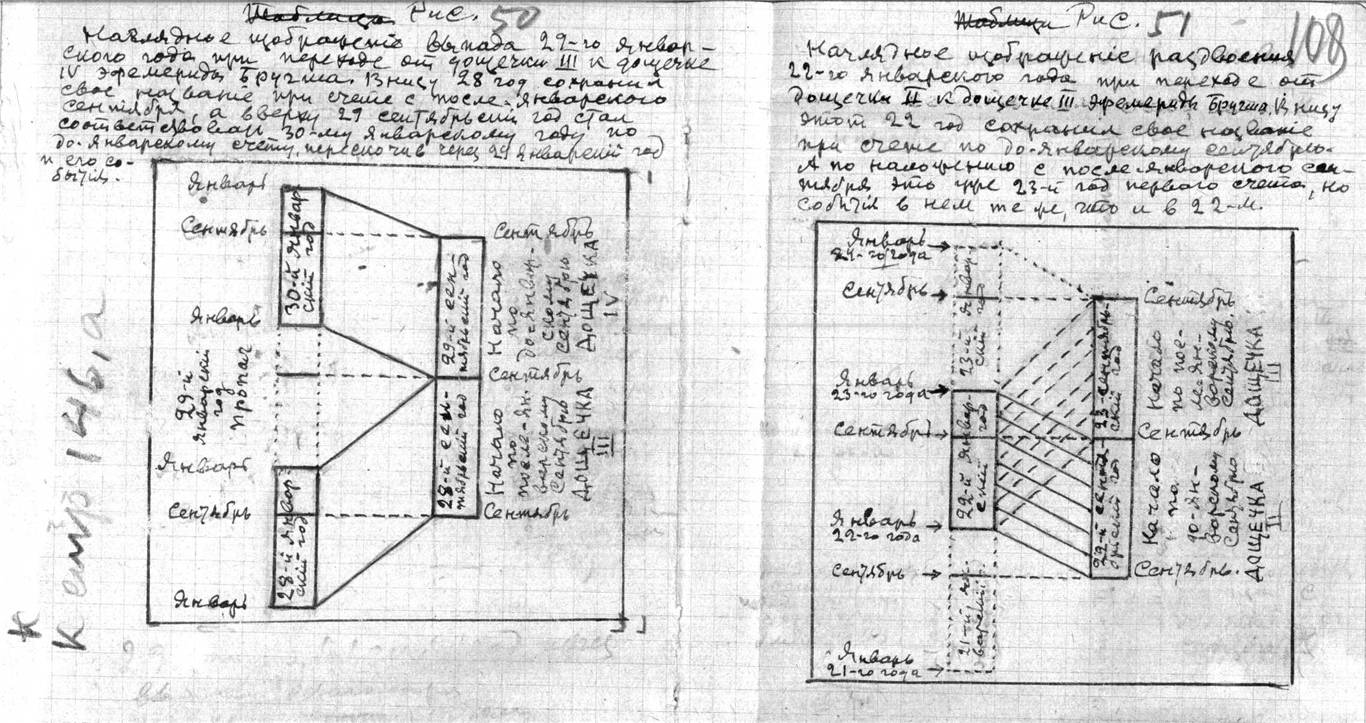 Таблица Рис. 50
Наглядное изображеніе выпада 29-го январ-
ского года при переходе от дощечки III к дощечке
IV эфемерид Бругша. Внизу 28 год сохранил
свое названіе при счете с после-январского
сентября, а вверху 29 сентябрьскій год стал
соответствовать 30-му январскому году по
до-январскому счету, перескочив через 29 январскій год
и его со-
бытія.
Январь
Сентябрь
Январь
29-й
январскій
год
пропал
Январь
Сентябрь
Январь
30-й январ
скій год
28-й январ
скій год
29-й сен-
тябрьскій год
28-й сен-
тябрьскій год
Сентябрь
Начало
по
до-январ-
скому
сентябрю
ДОЩЕЧКА
IV
Сентябрь
Начало
по
после-ян-
варскому
Сентябрю
ДОЩЕЧКА
III
Сентябрь
К
К стр 146,а
Таблица Рис. 51
108
Наглядное изображеніе раздвоения
22-го январского года при переходе от
дощечки II к дощечке III эфемерид Бругша. Внизу
этот 22 год сохранил свое названіе
при счете по до-январскому сентябрю.
А по
с после-январского сен-
тября это уже 23-й год первого счета, но
событія в нем те же, что и в 22-м.
Январь
Сентябрь
Январь
23-го года
Сентябрь
Январь
22-го года
Сентябрь
Январь
21-го года
23-й январ-
скій год
22-й январ-
скій год
21-й ян-
варскій
23-сентябрь-
скій год
22-й сентя-
брьскій год
Сентябрь
Начало
по пос-
ле-ян-
варскому
сентябрю.
ДОЩЕЧКА
III
Сентябрь
Начало
по
до-ян-
варскому
Сентябрю
ДОЩЕЧКА
II
Сентябрь.